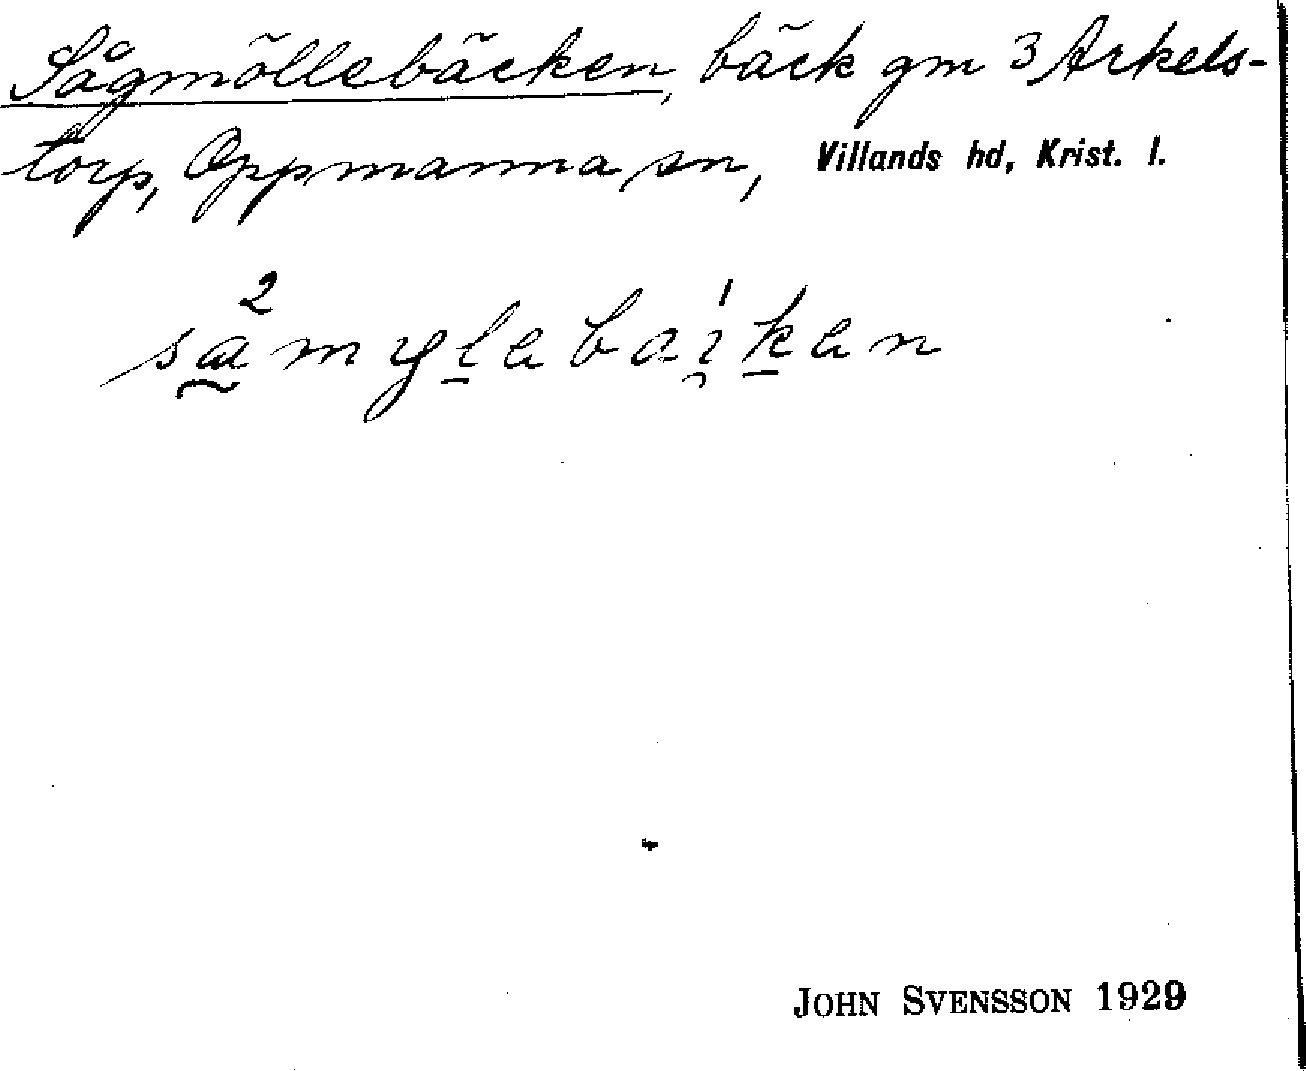 Sågmöllebäcken, bäck gm 3 Arkels-
torp, Oppmanna sn, Villands hd, Krist. l.
JOHN SVENSSON 1929